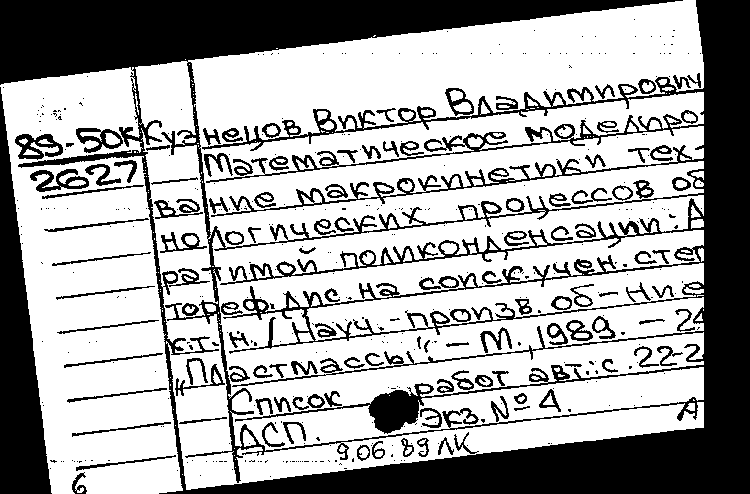 89-50К Кузнецов, Виктор Владимирович
2627 Математическое моделиро-
вание макрокинетики тех-
нологических процессов об
ратимой поликонденсации: А
тореф. дис. на соиск. учен. степ
к.т.н. / Науч.-произв. об-ние
„Пластмассы“. – М., 1989. – 24
Список работ авт.: с. 22-2
ДСП. Экз. № 4. А
9.06.89 ЛК
6